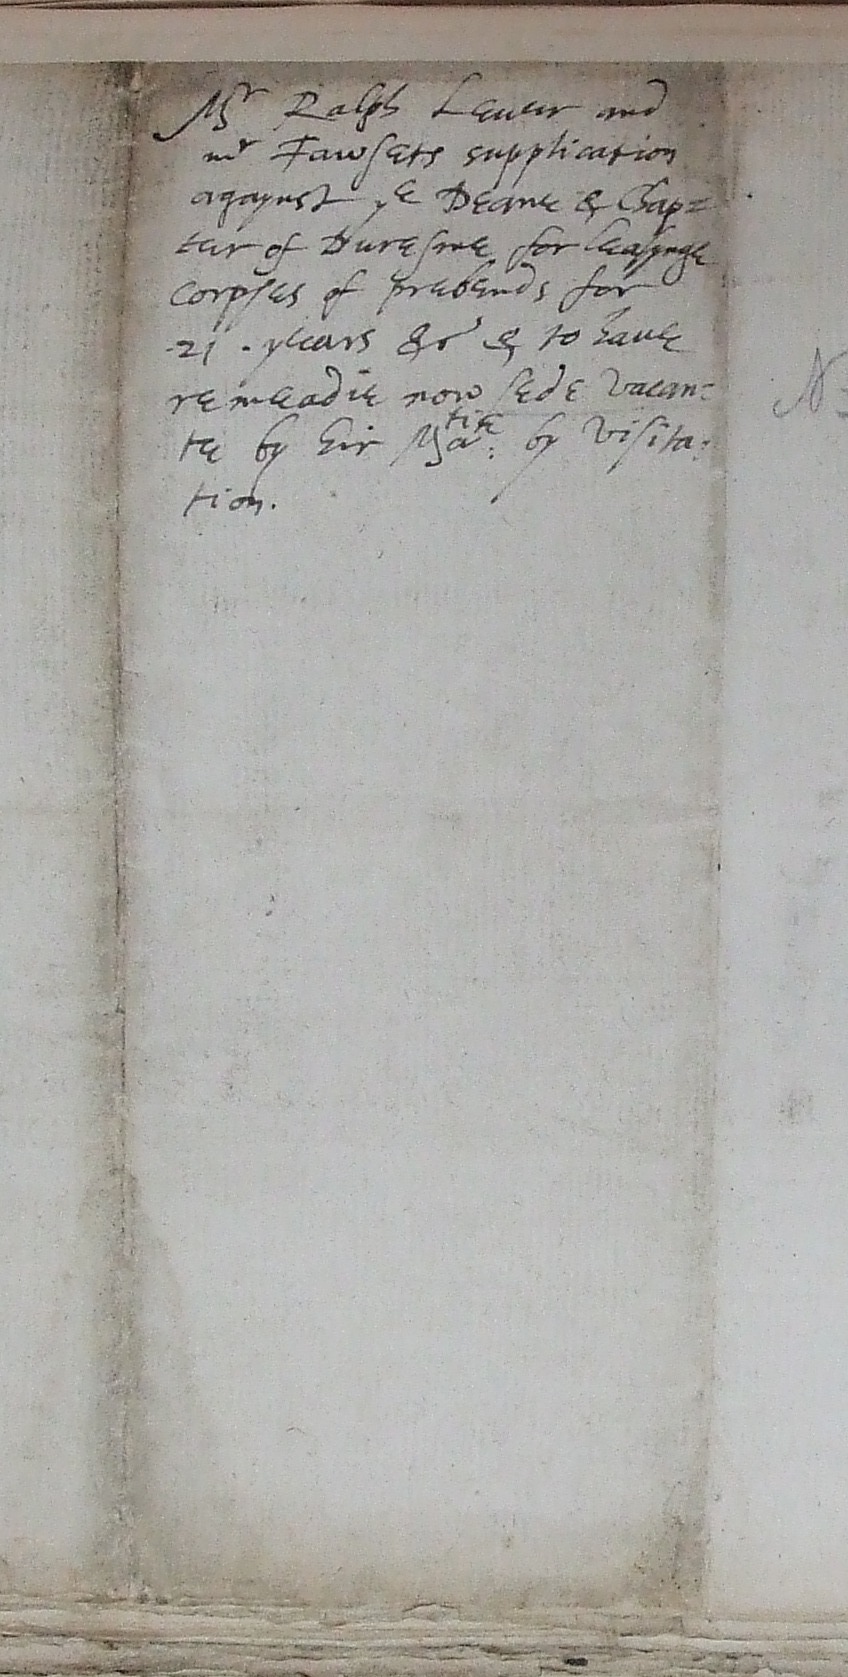 Mr Ralph Lever and
mr Fawsets supplication
agaynst ye Deane & Chap=
ter of Duresme for leasynge
corpses of prebends for
21. years &c & to haue
remeadie now sede vacan=
te by hir Matie: by visita:
tion.